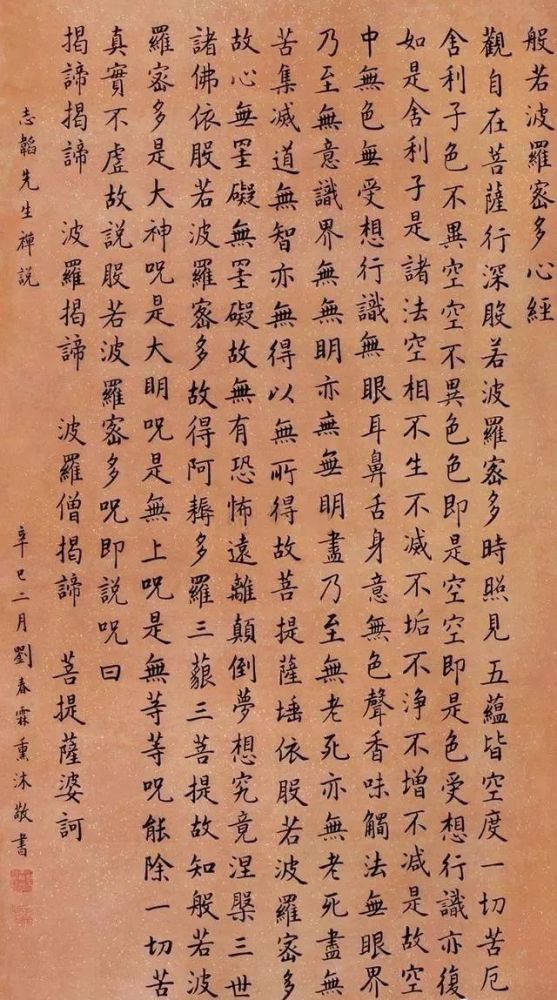 般若波羅密多心經
觀自在菩薩行深股若波羅密多時照見五蘊皆空度一切苦厄
舍利子色不異空空不異色色即是空空即是色受想行識亦復
如是舍利子是諸法空相不生不滅不垢不淨不增不減是故空
中無色無受想行識無眼耳鼻舌身意無色聲香味觸法無眼界
乃至無意識界無無明亦無無明盡乃至無老死亦無老死盡無
苦集滅道無智亦無得以無所得故菩提薩埵依股若波羅密多
故心無罣礙無罣礙故無有恐怖遠離顛倒夢想究竟涅槃三世
諸佛依股若波羅密多故得阿耨多羅三藐三菩提故知般若波
羅密多是大神咒是大明咒是無上咒是無等等咒能除一切苦
真實不虛故說股若波羅密多咒即說咒曰
揭諦揭諦 波羅揭諦 波羅僧揭諦 菩提薩婆訶
志韜先生禪說
辛巳二月劉春霖熏沐敬書